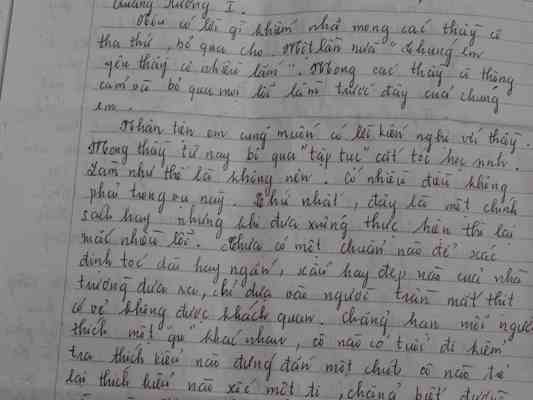 Quảng Xương I.
Nếu có lời gì khiếm nhã mong các thầy cô
tha thứ, bỏ qua cho. Một lần nữa "chúng em
yêu thầy cô nhiều lắm". Mong các thầy cô thông
cảm và bỏ qua mọi lỗi lầm trước đây của chúng
em.
Nhân tiện em cũng muốn có lời kiến nghị với thầy.
Mong thầy từ nay bỏ qua "tập tục" cắt tóc học sinh.
Làm như thế là không nên. Có nhiều điều không
phải trong vụ này. Thứ nhất, đây là một chính
sách hay nhưng khi đưa xuống thực hiện thì lại
mắc nhiều lỗi. Chưa có một chuẩn nào để xác
định tóc dài hay ngắn, xấu hay đẹp nào của nhà
trường đưa ra, chỉ dựa vào người trần mắt thịt
có vẻ không được khách quan. Chẳng hạn mỗi người
thích một "gu" khác nhau, cô nào có tuổi đi kiểm
tra thích kiểu nào đứng đắn một chút cô nào trẻ
lại thích kiểu nào xì tin một tí, chẳng biết đường